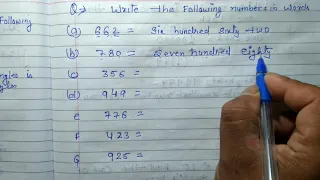 Following
Q→ Write the Following numbers in words
(a) 662 = Six hundred sixty-two
(b) 780 = Seven hundred eighty
(c) 356 =
(d) 949 =
e 776 =
f 423 =
G 925 =
ngles is